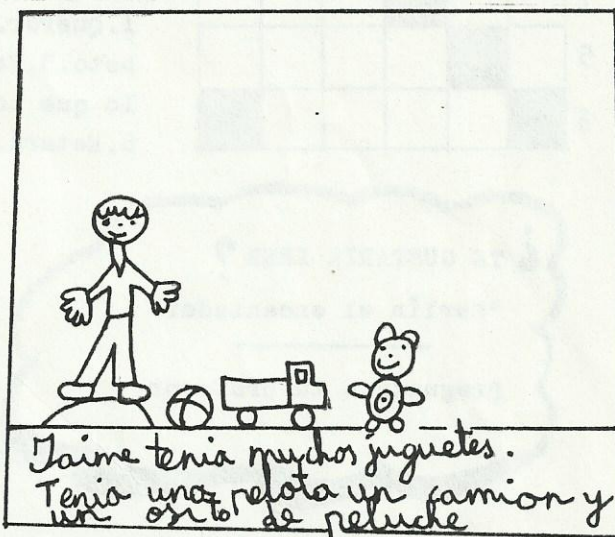 Jaime tenia muchos juguetes.
Tenia una pelota un camion y
un osito de peluche